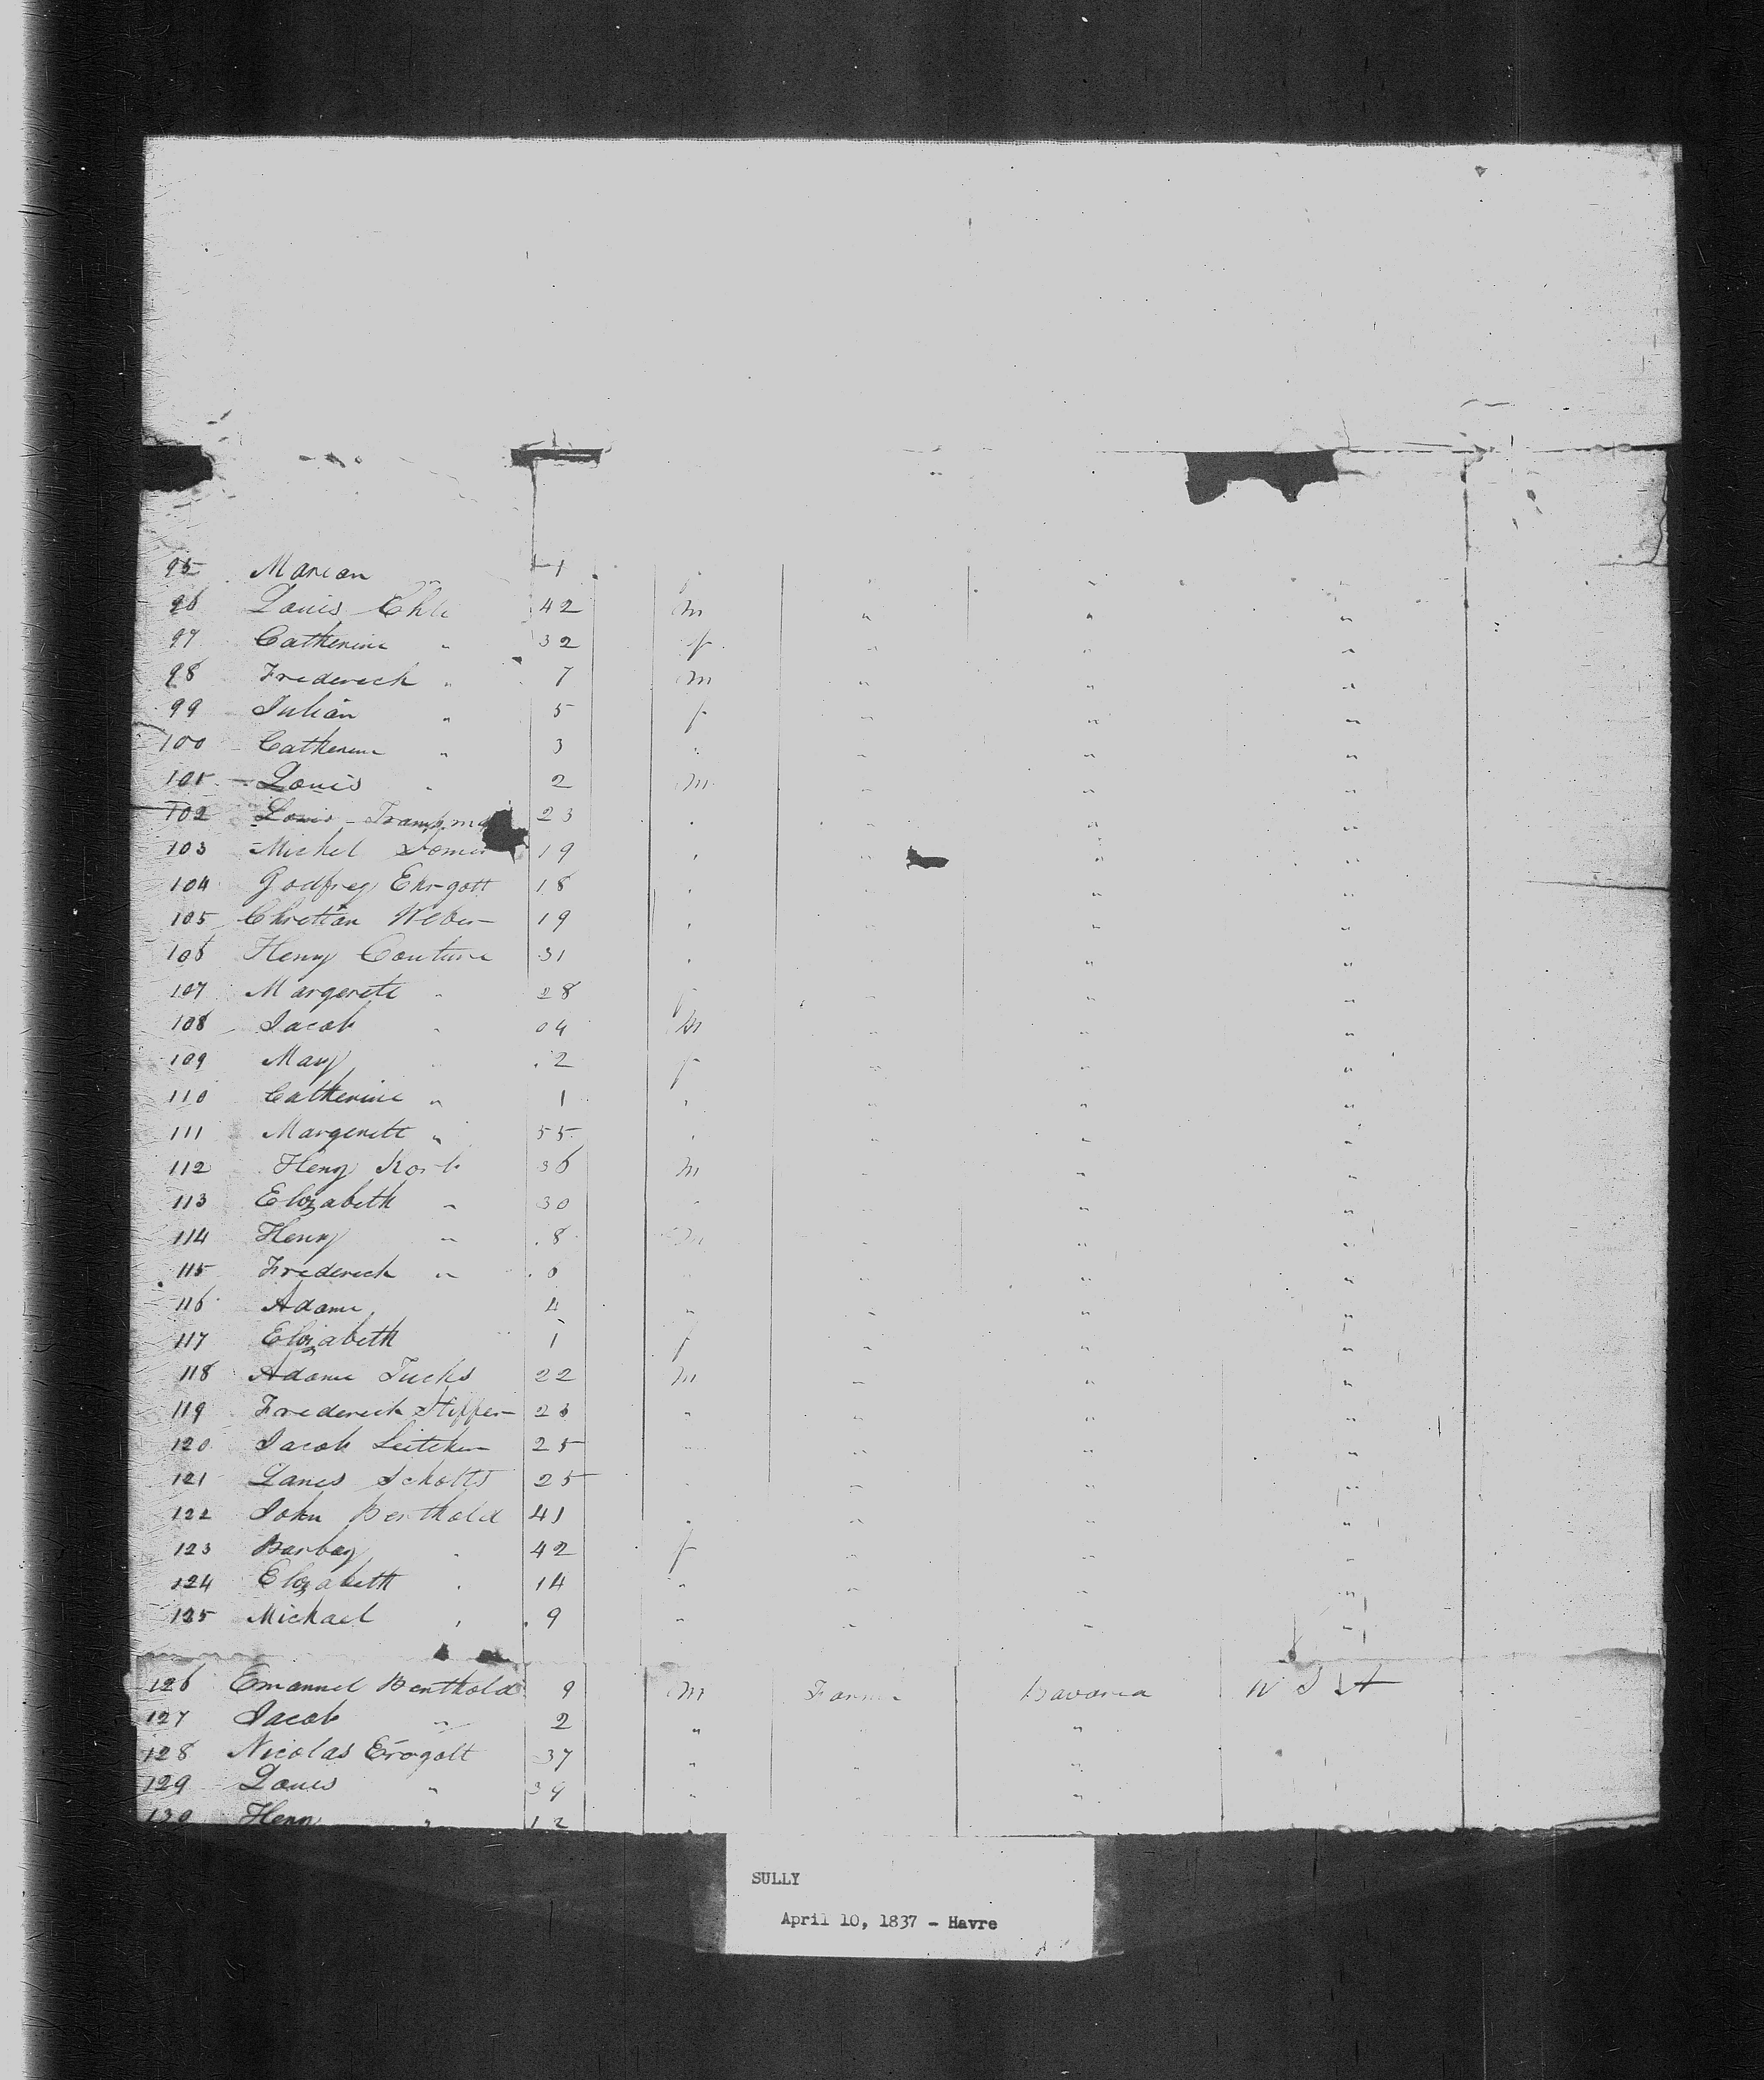 95 Marian 1 f " " "
96 Louis Ehle 42 m " " "
97 Catherine " 32 f " " "
98 Frederech " 7 m " " "
99 Julian " 5 f " " "
100 Catherine " 3 " " " "
101 Louis " 2 m " " "
102 Louis 23 " " " "
103 Michel 19 " " " "
104 Godfrey Ehrgott 18 " " "
105 Chrettan Weber 19 " " "
106 Henry Couture 31 " " "
107 Margerete " 28 f " " "
108 Jacob " 04 m " " "
109 Mary " 2 f " " "
110 Catherine " 1 " " " "
111 Margerete " 55 " " " "
112 Heny Korb 36 m " "
113 Elizabeth " 30 " " " "
114 Henry " 8 m " " "
115 Frederech " " " " "
116 Adame 4 " " " "
117 Elizabeth 1 f " " "
118 Adame Fuchs 22 m " " "
119 Frederech Stiffer 23 " " " "
120 Jacob 25 " " " "
121 Louis Scholts 25 " " " "
122 John Berthold 41 " " " "
123 Barbay " 42 f " " "
124 Elizabeth " 14 " " " "
125 Michael " 9 " " " "
126 Emanuel Berthold 9 m Farmer Bavaria
127 Jacob " 2 " "
128 Nicolas Erogott 37 " " "
129 Louis " 39 " " "
130 Henry " 12
SULLY
April 10, 1837 - Havre